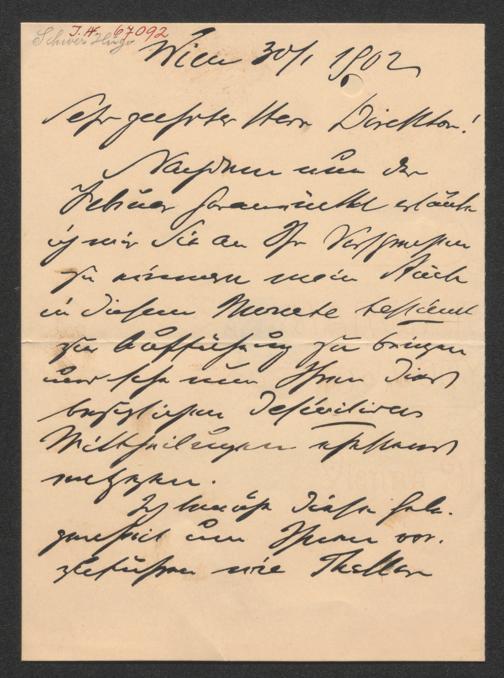 J.N. 67092
Schwer Hugo
Wien 30/1 1902
Sehr geehrter Herr Direktor!
Nachdem nun der
Feber heranrückt erlaube
ich mir Sie an Ihr Versprechen
zu erinnern mein Stück
in diesem Monate bestimmt
zur Aufführung zu bringen
und sehe nun Ihren dies
bezüglichen definitiven
Mittheilungen
entgegen.
Ich benütze diese Gele-
genheit um Ihnen vor-
zuführen wie